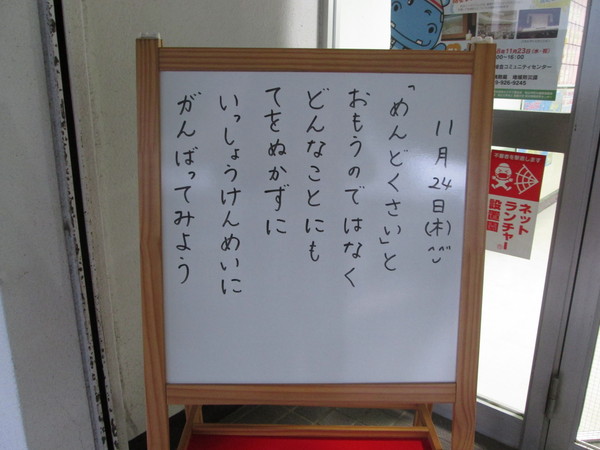 11月24日(木)^^
「めんどくさい」と
おもうのではなく
どんなことにも
てをぬかずに
いっしょうけんめいに
がんばってみよう
11月23日(水・祝)
16:00
コミュニティセンター
926-9245
不審者を撃退します
ネット
ランチャー
設置園